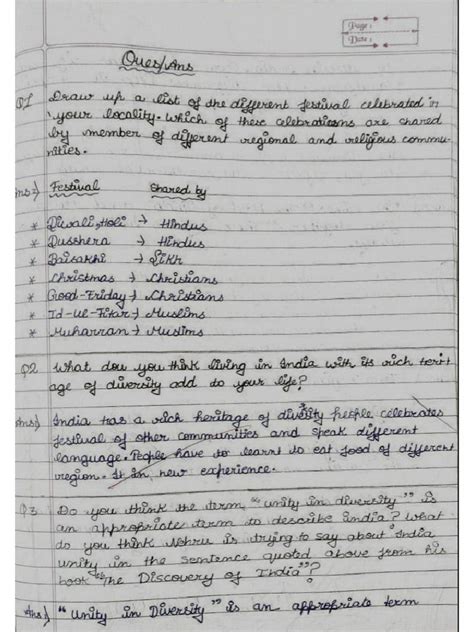 Page :
Date :
Ques/Ans
Q1 Draw up a list of the different festival celebrated in
your locality. Which of these celebrations are shared
by member of different regional and religious commu-
nities.
Ans⇒ Festival Shared by
* Diwali, Holi → Hindus
* Dusshera → Hindus
* Baisakhi → Sikh
* Christmas → Christians
* Good-Friday → Christians
* Id-ul-Fitar → Muslims
* Muharran → Muslims
Q2 What dou you think living in India with its rich terit-
age of diversity add to your life?
Ans) India has a rich heritage of diversity people celebrates
festival of other communities and speak different
language. People have to learnt to eat food of different
region. It in new experience.
Q3 Do you think the term, "unity in diversity" is
an appropriate term to describe india? What
do you think Nehru is trying to say about India
unity in the sentence quoted above from his
book "The Discovery of India"?
Ans) "Unity in Diversity" is an appropriate term